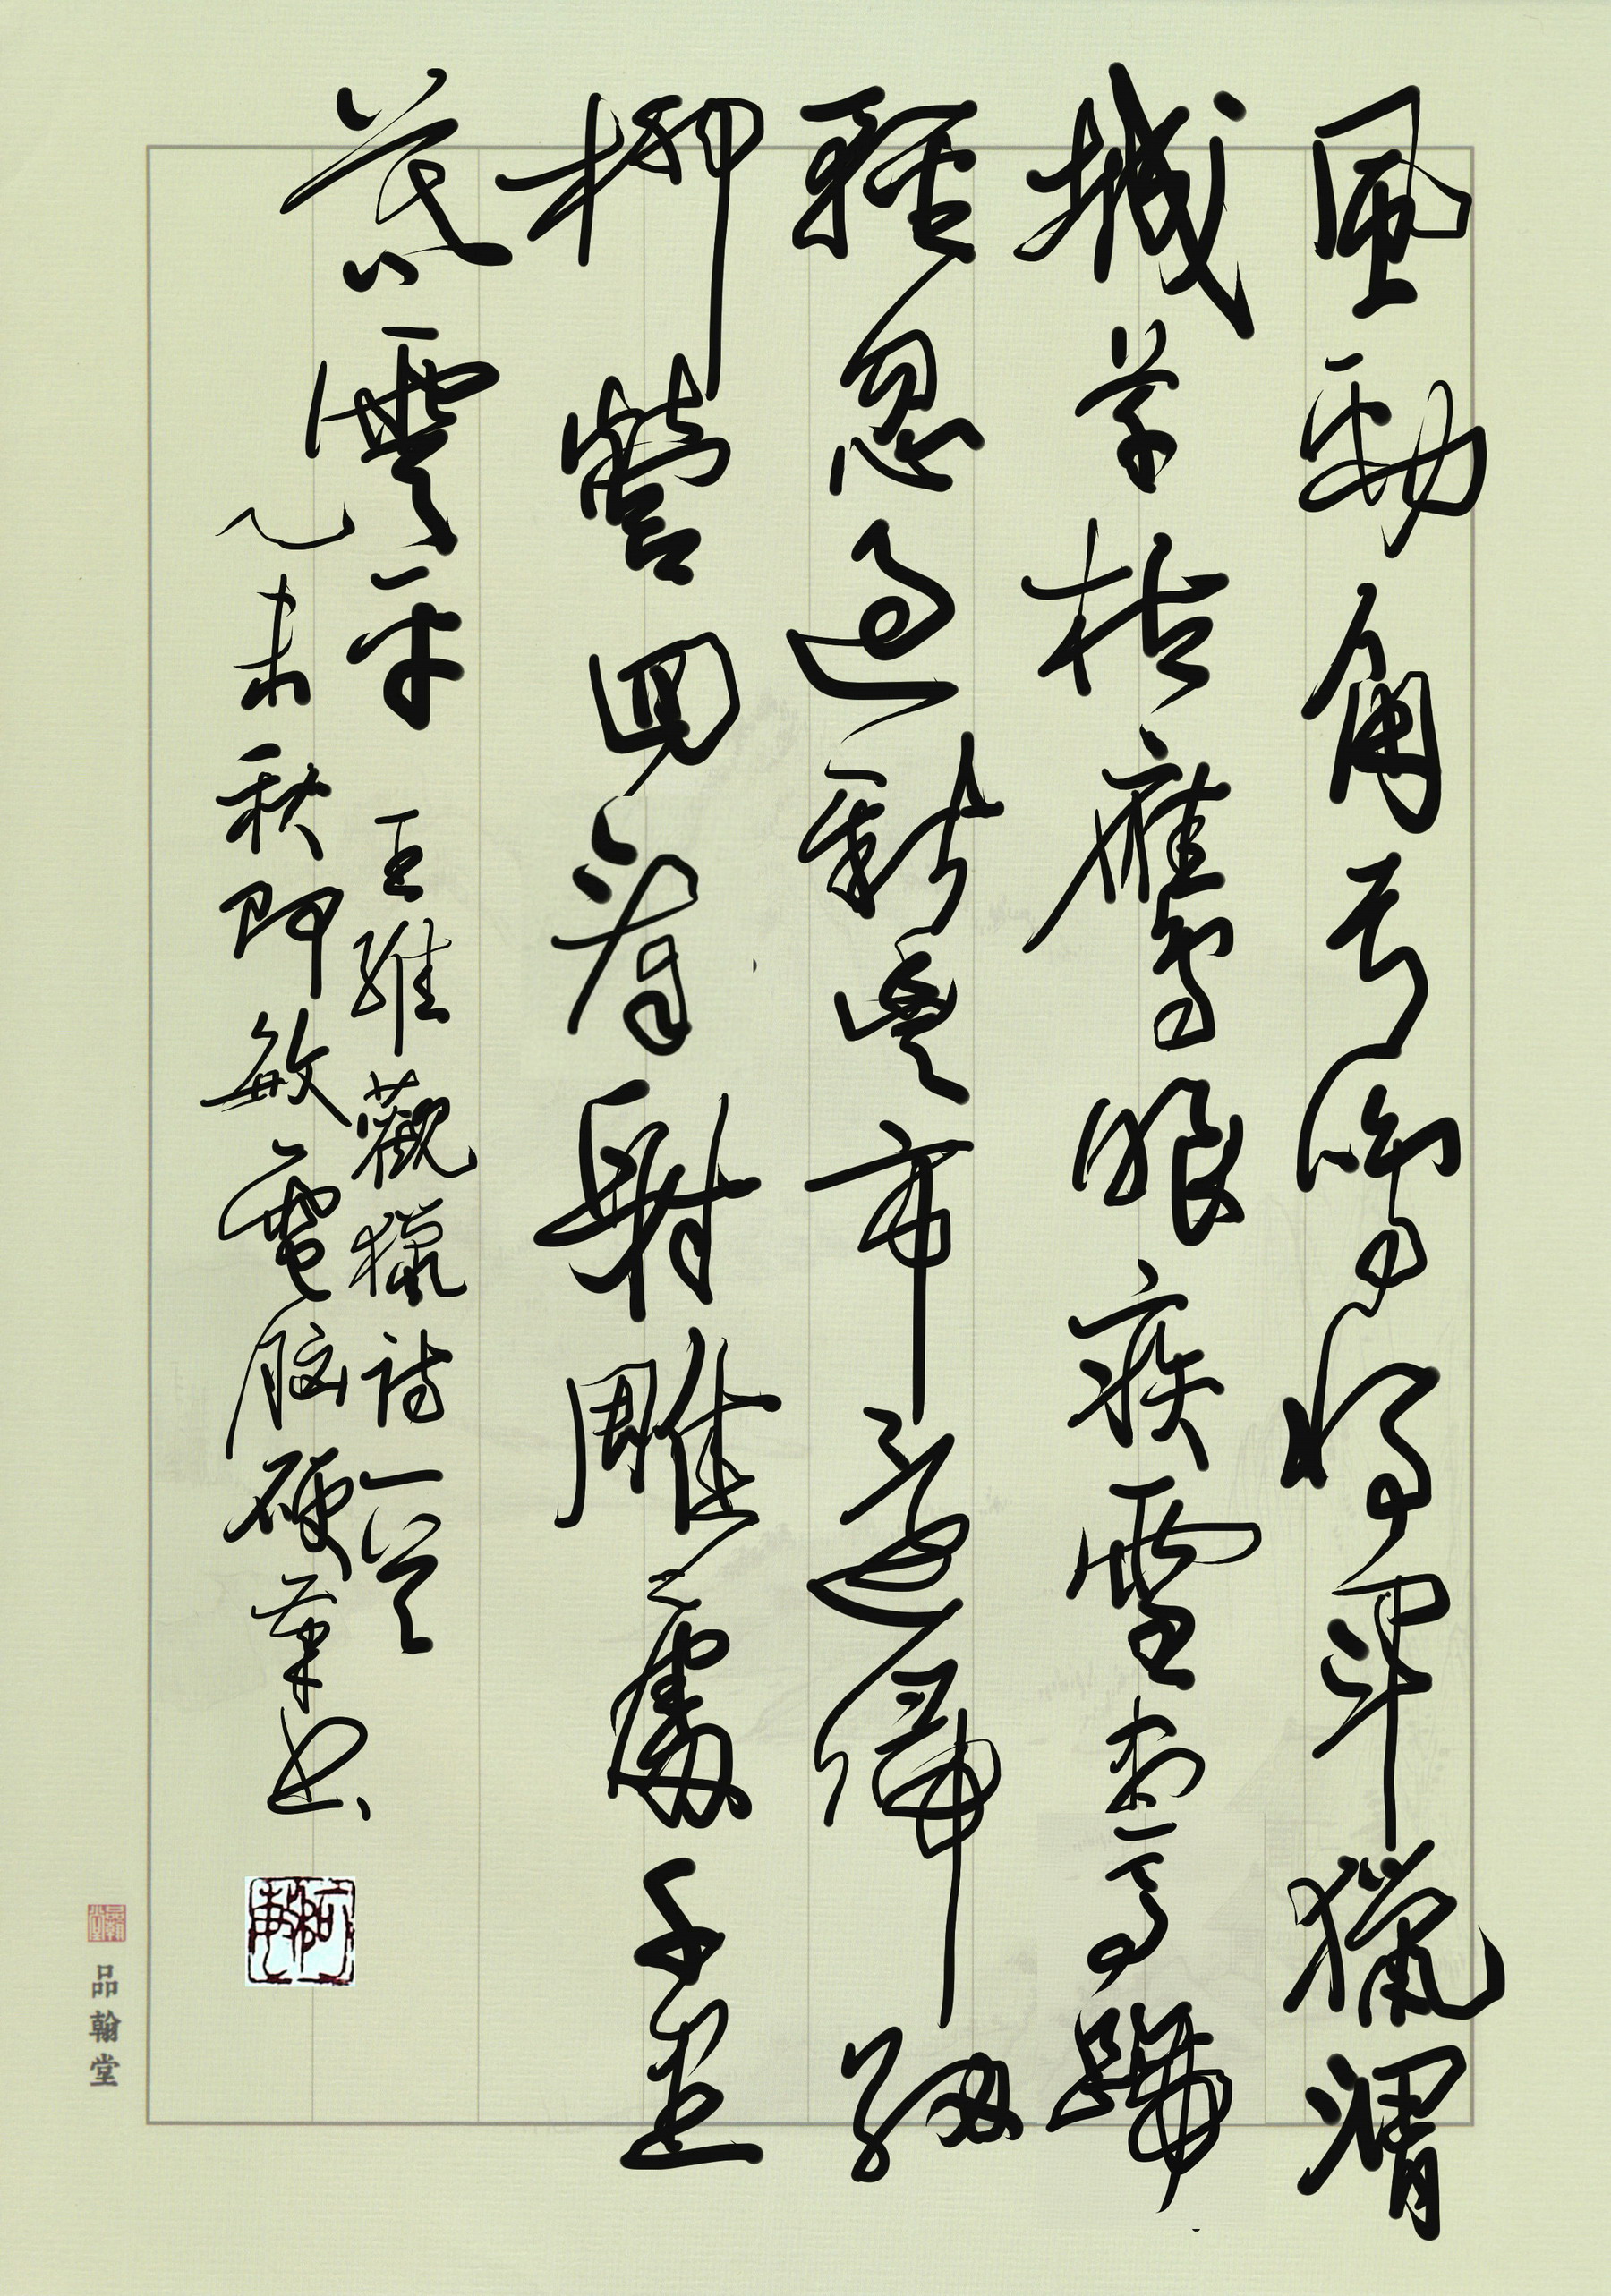 風勁角弓鳴將軍獵渭
城草枯鷹眼疾雪盡馬蹄
輕忽過新豐市還歸細
柳營回看射雕處千里
暮雲平 王維觀獵詩一首
乙未秋阿敏電腦硬筆书
阿敏
品翰堂
品翰堂